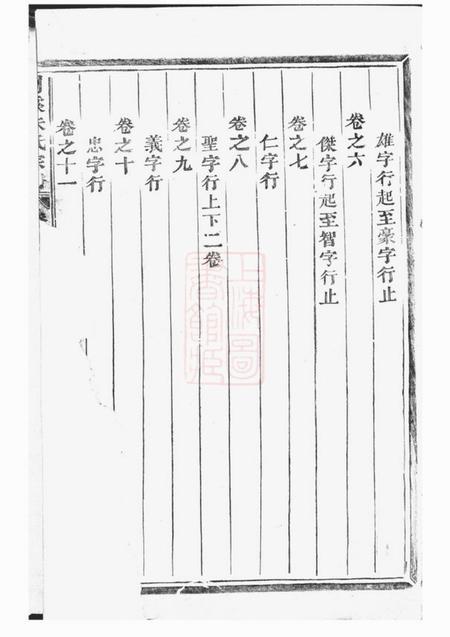 雄字行起至豪字行止
卷之六
傑字行起至智字行止
卷之七
仁字行
卷之八
聖字行上下二卷
卷之九
義字行
卷之十
忠字行
卷之十一
上海圖書館藏